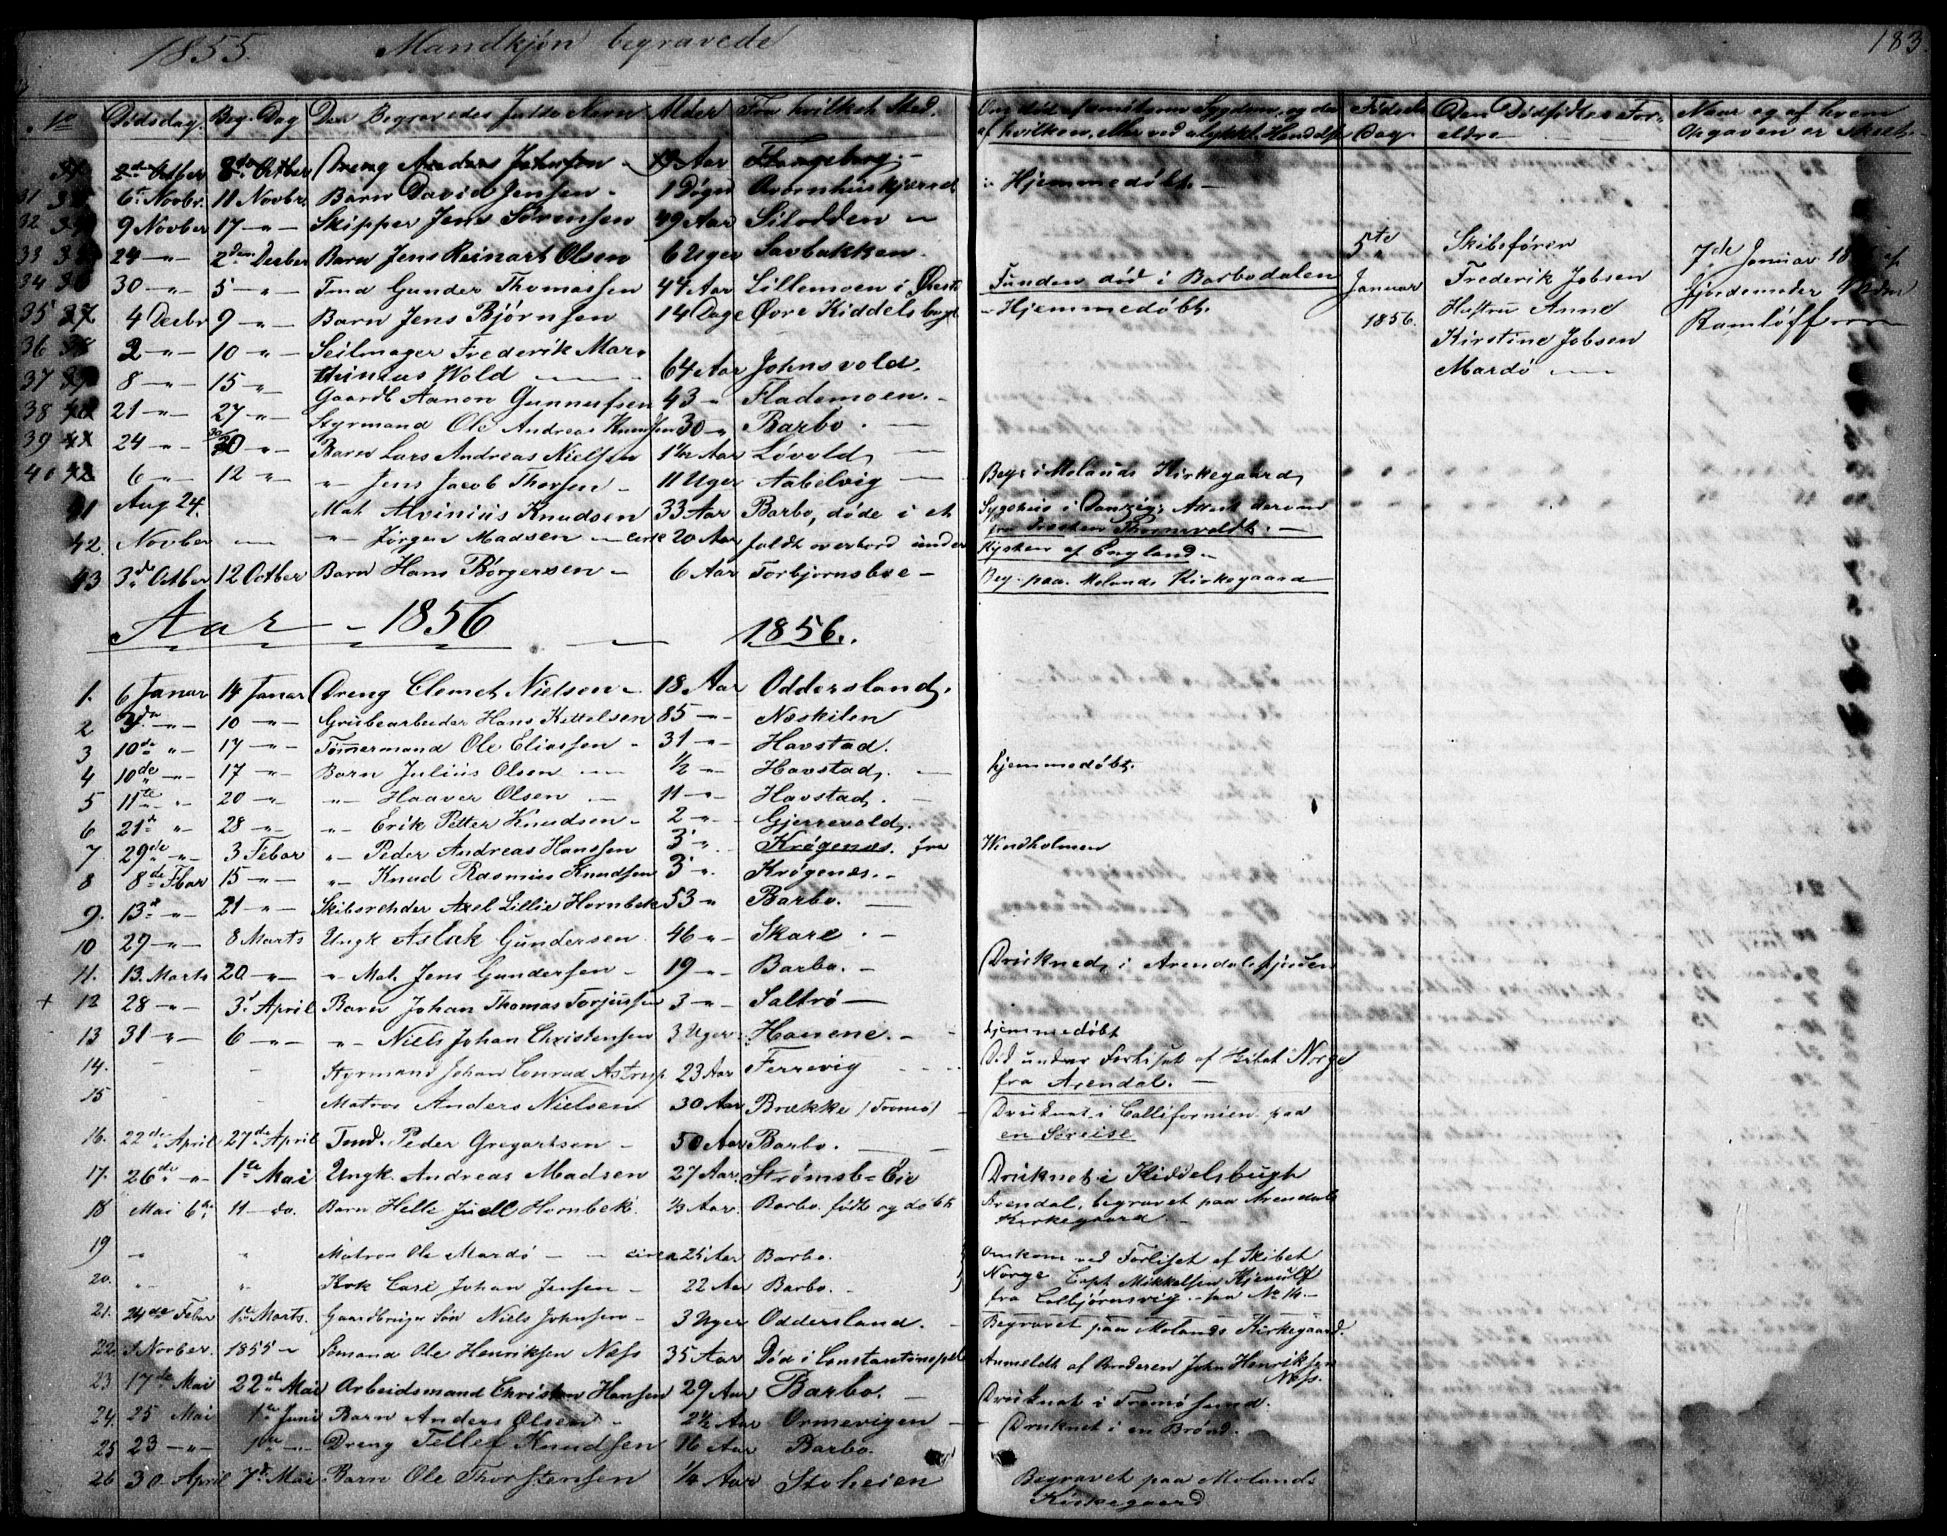 1855. Mandkjøn begravede
183.
No Dødsdag. Beg. Dag Den Begravedes fulde Navn Alder Fra hvilket Sted.
Fødsels Dag Den Dødfødtes Forældre Naar og af hvem Opgaven er skeet.
8de Octber Dreng Anders Aar
31 6te Novbr. 11 Novbr. Barn David Jensen 1 Døgn
Hjemmedøbt.
32 9 Novber 17 -"- Skipper Jens Sørensen 49 Aar Silodden
33 24 -"- 2den Decber Barn Jens Reinart Olsen 6 Uger Savbakken.
34 30 -"- 5 -"- Tmd Gunder Thomassen 44 Aar Lillemoen i
Funden død i Barbodalen
35 4 Decbr 9 -"- Barn Jens Bjørnsen 14 Dage Øvre Kiddelsbugt
Hjemmedøbt.
36 2 -"- 10 -"- Seilmager Frederik Mar-
thinius Wold 64 Aar Johnsvold.
37 8 -"- 15 -"- Gaardb. Aanon Gunnufsen 43 -"- Flademoen.
38 21 -"- 27 -"- Styrmand Ole Andreas Knudsen 30 -"- Barbo.
39 24 -"- 30 -"- Barn Lars Andreas Nielsen 1½ Aar Løvold
40 6 -"- 12 -"- -"- Jens Jacob Thorsen 11 Uger Aabelvig
Begr. i Molands Kirkegaard
41 Aug 24. Mat. Alvinius Knudsen 33 Aar Barbo, døde i et
Sygehus i Danzig; Attest derom fra Presten
42. Novber -"- Jørgen Madsen cirk 20 Aar faldt overbord under
Kysten af England.
43 3de Octber 12 Octber Barn Hans Børgersen 6 Aar Torbjørnsboe
Beg. paa Molands Kirkegaard
5te Januar 1856.
Skibsfører
Frederik Jobsen
Hustru Anne
Kirstine Jobsen
Mardø
7de Januar af
Gjordemoder
Ramløff
Aar 1856 1856.
1. 6 Januar 14 Januar Dreng Clemet Nielsen 18 Aar Oddersland.
2 -"- 10 -"- Grubearbeider Hans Kittelsen 85 -"- Næskilen
3 10de -"- 17 -"- Tømmermand Ole Eliassen 31 -"- Havstad.
4 10de -"- 17 -"- Barn Julius Olsen ½ -"- Havstad.
hjemmedøbt.
5 11te -"- 20 -"- -"- Haaver Olsen 11 -"- Havstad.
6 21de -"- 28 -"- -"- Erik Petter Knudsen 2 -"- Gjerrevold.
7. 29de -"- 3 Febar -"- Peder Andreas Hanssen 3 -"- Krøgenæs. fra
Windholmen
8 8de Fbar 15 -"- -"- Knud Rasmus Knudsen 3 -"- Krøgenæs.
9. 13de -"- 21 -"- Skibsrehder Axel Lillie Hornbek 53 -"- Barbo.
10 29 -"- 8 Marts Ungk Aslak Gundersen 46 -"- Skare.
11. 13. Marts 20 -"- -"- Mat. Jens Gundersen 19 -"- Barbo.
Druknede i Arendalsfjorden
+ 12 28 -"- 3 April Barn Johan Thomas Torjussen 3 -"- Saltrø
13 31 -"- 6 -"- -"- Niels Johan Christensen 3 Uger Hanene.
hjemmedøbt
14. Styrmand Johan Conrad Astrup 23 Aar Ferrevig
Død under Forliset af Skibet Norge
fra Arendal.
15 Matros Anders Nielsen 30 Aar Brække (Tromø)
Druknet i Californien paa
en Søreise
16. 22de April 27de April Tmd. Peder Gregertsen 50 Aar Barbo.
17. 26de -"- 1te Mai Ungk Andreas Madsen 27 Aar. Strømsb-Eie
Druknet i Kiddelsbugt
18 Mai 6te 11 do. Barn Helle Juell Hornbek Aar. Barbo. født og døbt
Arendal, begravet paa Arendals
Kirkegaard.
19 " " Matros Ole Mardø circa 25 Aar Barbo.
Omkom ved Forliset af Skibet
20. " " Kok Carl Johan Jensen 22 Aar Barbo.
Norge Capt. Mikkelsen
fra Colbjørnsvig. No 14.
21. 24de Febar 1te Marts. Gaardbruger Søn Niels Johnsen 3 Uger Oddersland.
Begravet paa Molands Kirkegaard.
22. Novber. 1855 Sømand Ole Henriksen Næss 35 Aar Død i Constantinopel
Anmeldt af Broderen John Henriksen
Næss.
23 17de Mai 22de Mai Arbeidsmand Christen Hansen 29 Aar Barbo.
Druknet i Tromøsund.
24. 25 Mai 1te Juni Barn Anders Olsen 2½ Aar Ormevigen
Druknet i en Brønd.
25 23 -"- 1te -"- Dreng Tellef Knudsen 16 Aar Barbo.
26 30 April 7de Mai Barn Ole Thorstensen ¼ Aar Stoheien
Begravet paa Molands
Kirkegaard